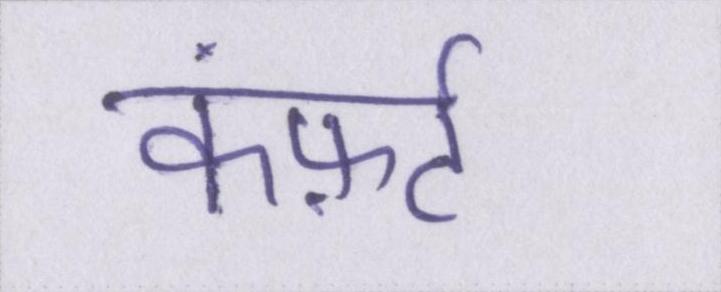 कंफ़र्ट